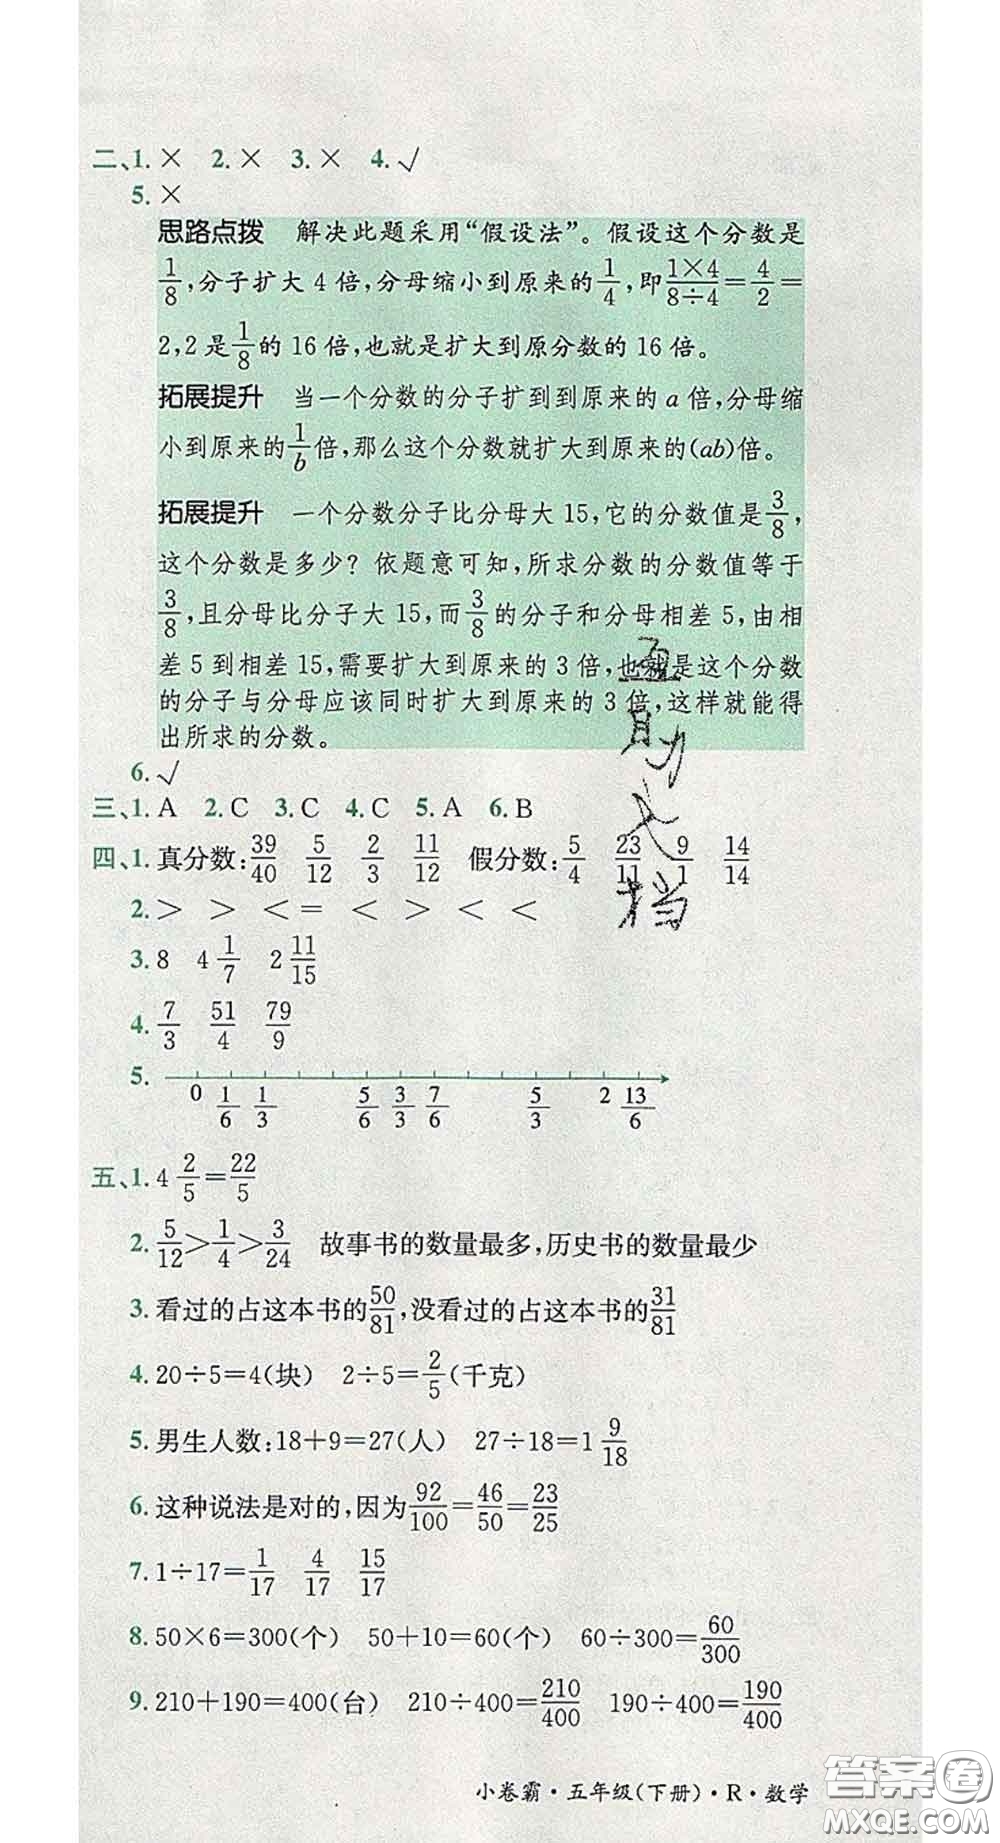 二、1. × 2. × 3. × 4. √
5. ×
思路点拨 解决此题采用“假设法”。假设这个分数是
1/8,分子扩大 4 倍,分母缩小到原来的1/4,即(1×4)/(8÷4)=4/2=
2,2 是1/8的 16 倍,也就是扩大到原分数的 16 倍。
拓展提升 当一个分数的分子扩到到原来的 a 倍,分母缩
小到原来的1/b倍,那么这个分数就扩大到原来的(ab)倍。
拓展提升 一个分数分子比分母大 15,它的分数值是3/8,
这个分数是多少? 依题意可知,所求分数的分数值等于
3/8,且分母比分子大 15,而3/8的分子和分母相差 5,由相
差 5 到相差 15,需要扩大到原来的 3 倍,也就是这个分数
的分子与分母应该同时扩大到原来的 3 倍,这样就能得
出所求的分数。
6. √
三、1. A 2. C 3. C 4. C 5. A 6. B
四、1. 真分数:39/40 5/12 2/3 11/12 假分数:5/4 23/11 9/1 14/14
2. > > < = < > < <
3. 8 4 1/7 2 11/15
4. 7/3 51/4 79/9
5. 0 1/6 1/3 5/6 3/3 7/6 5/3 2 13/6
五、1. 4 2/5=22/5
2. 5/12>1/4>3/24 故事书的数量最多,历史书的数量最少
3. 看过的占这本书的50/81,没看过的占这本书的31/81
4. 20÷5=4(块) 2÷5=2/5(千克)
5. 男生人数:18+9=27(人) 27÷18=1 9/18
6. 这种说法是对的,因为92/100=46/50=23/25
7. 1÷17=1/17 4/17 15/17
8. 50×6=300(个) 50+10=60(个) 60÷300=60/300
9. 210+190=400(台) 210÷400=210/400 190÷400=190/400
小卷霸·五年级(下册)·R·数学
答案圈
MXQE.COM